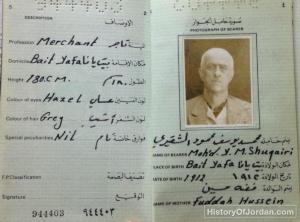 DESCRIPTION
الأوصاف
Profession Merchant تاجر
Domicile Bait Yafa بيت يافا مكان الإقامة
Height 180 C.M. ١٨٠ الطول
Colour of eyes Hazel عسلي لون العينين
Colour of hair Grey لون الشعر
Special peculiarities Nil
F.P. Classification تصنيف البصمة
Signature التوقيع
944403 ٩٤٤٤٠٣
5
صورة حامل الجواز
PHOTOGRAPH OF BEARER
محمد يوسف محمود الشقيري
NAME OF BEARER Moh'd Y.M. Shuqairi
PLACE OF BIRTH Bait Yafa بيت يافا مكان الولادة
DATE OF BIRTH 1912 ١٩١٢ تاريخ الولادة
NAME OF MOTHER Fuddah Hussein
فضه حسين
HistoryOfJordan.com